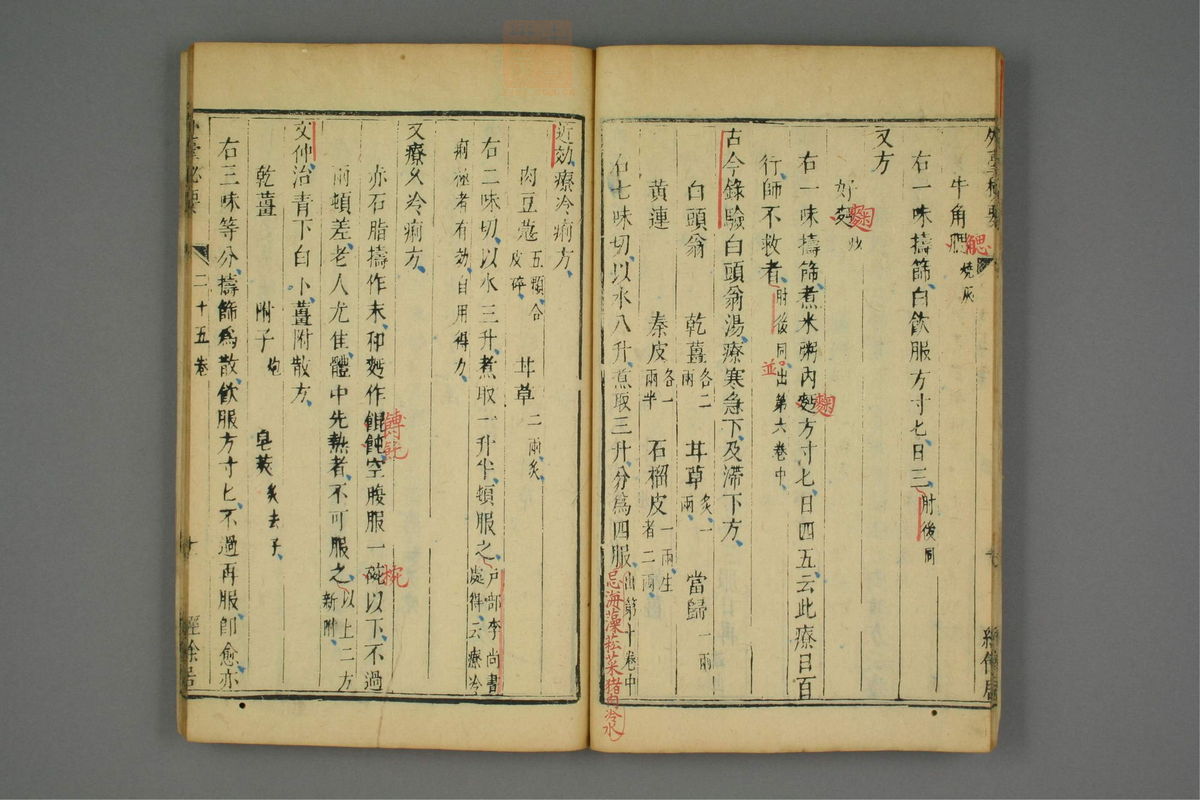 牛角䚡燒灰
右一味擣篩白飲服方寸匕日三肘後同
又方
好麴炒
右一味擣篩煮米粥內麴方寸匕日四五云此療日百
行師不救者肘後同出第六卷中
古今錄驗白頭翁湯療寒急下及滯下方
白頭翁 乾薑各二兩 甘草炙一兩 當歸一兩
黃連 秦皮各一兩半 石榴皮一兩生者二兩
右七味切以水八升煮取三升分爲四服出第十卷中
忌海藻菘菜猪肉冷水
䚡
麴
麴
並
近効療冷痢方
肉豆蔻五顆合皮碎 甘草二兩炙
右二味切以水三升煮取一升半頓服之戶部李尚書處得云療冷
痢極者有効自用得力
又療久冷痢方
赤石脂擣作末和麪作餛飩空腹服一碗以下不過
兩頓差老人尤佳體中先熱者不可服之以上二方新附
文仲治青下白下薑附散方
乾薑 附子炮 皂莢炙去子
右三味等分擣篩爲散飲服方寸匕不過再服卽愈亦
餺飥
椀
外臺秘要
二十五卷
十
經餘居